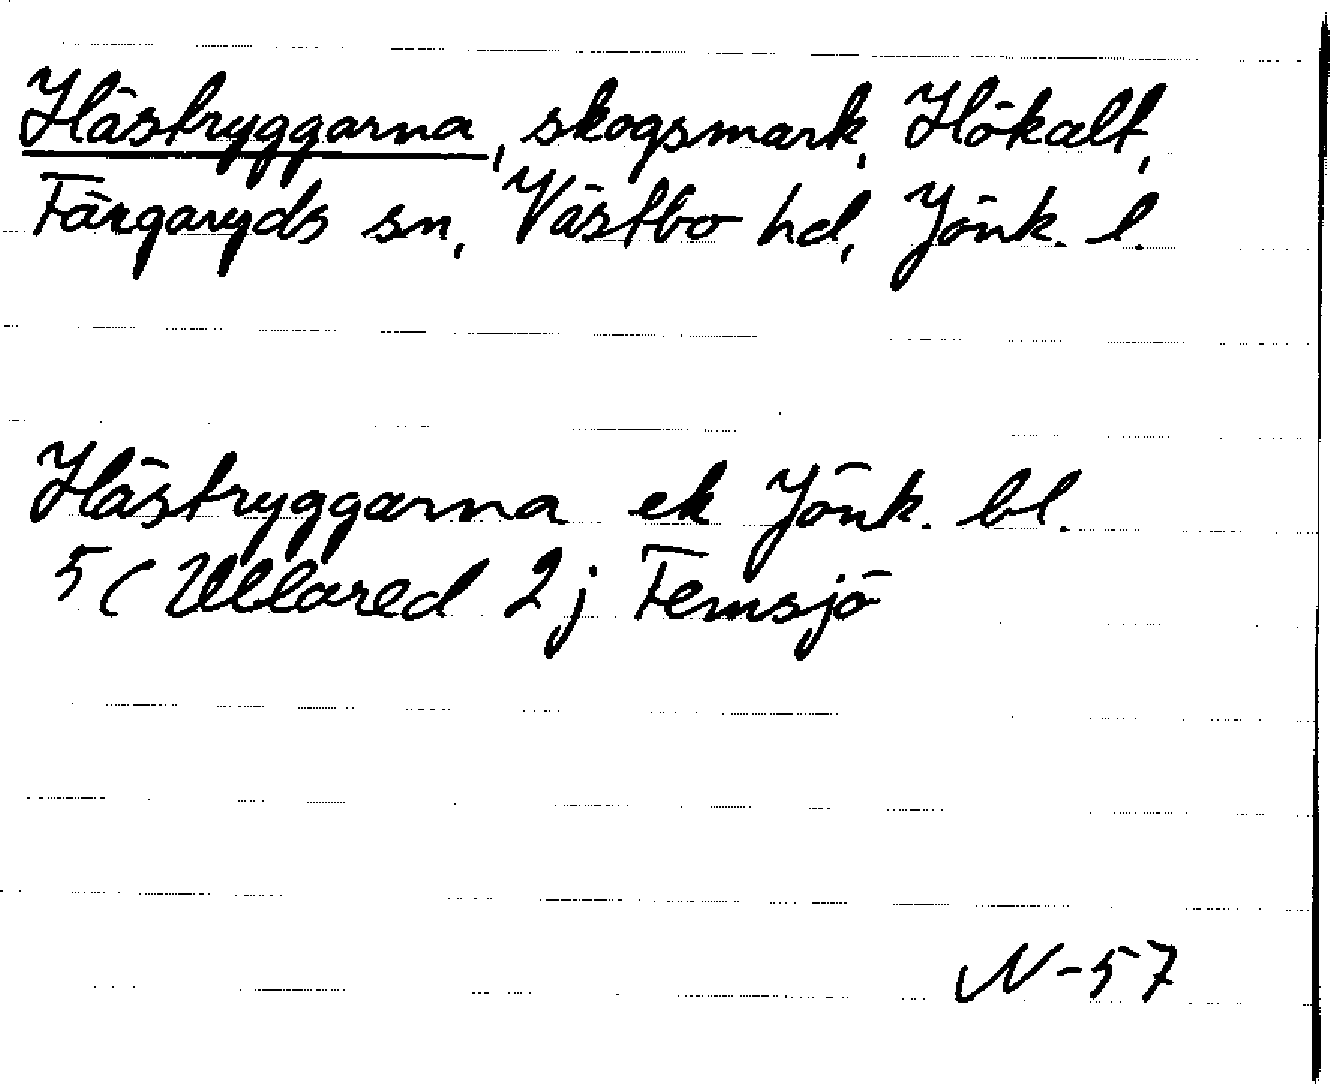 Hästryggarna, skogsmark, Hökalt,
Färgaryds sn, Västbo hd, Jönk. l.
Hästryggarna ek Jönk. bl.
5 (Ullared 2j Femsjö
N-57